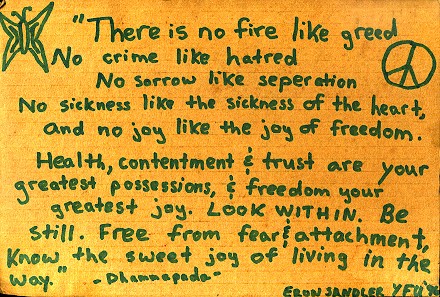 "There is no fire like greed
No crime like hatred
No sorrow like seperation
No sickness like the sickness of the heart,
and no joy like the joy of freedom.
Health, contentment & trust are your
greatest possessions, & freedom your
greatest joy. LOOK WITHIN. Be
still. Free from fear & attachment,
Know the sweet joy of living in the
way."
-Dhammapada-
ERON SANDLER YFU